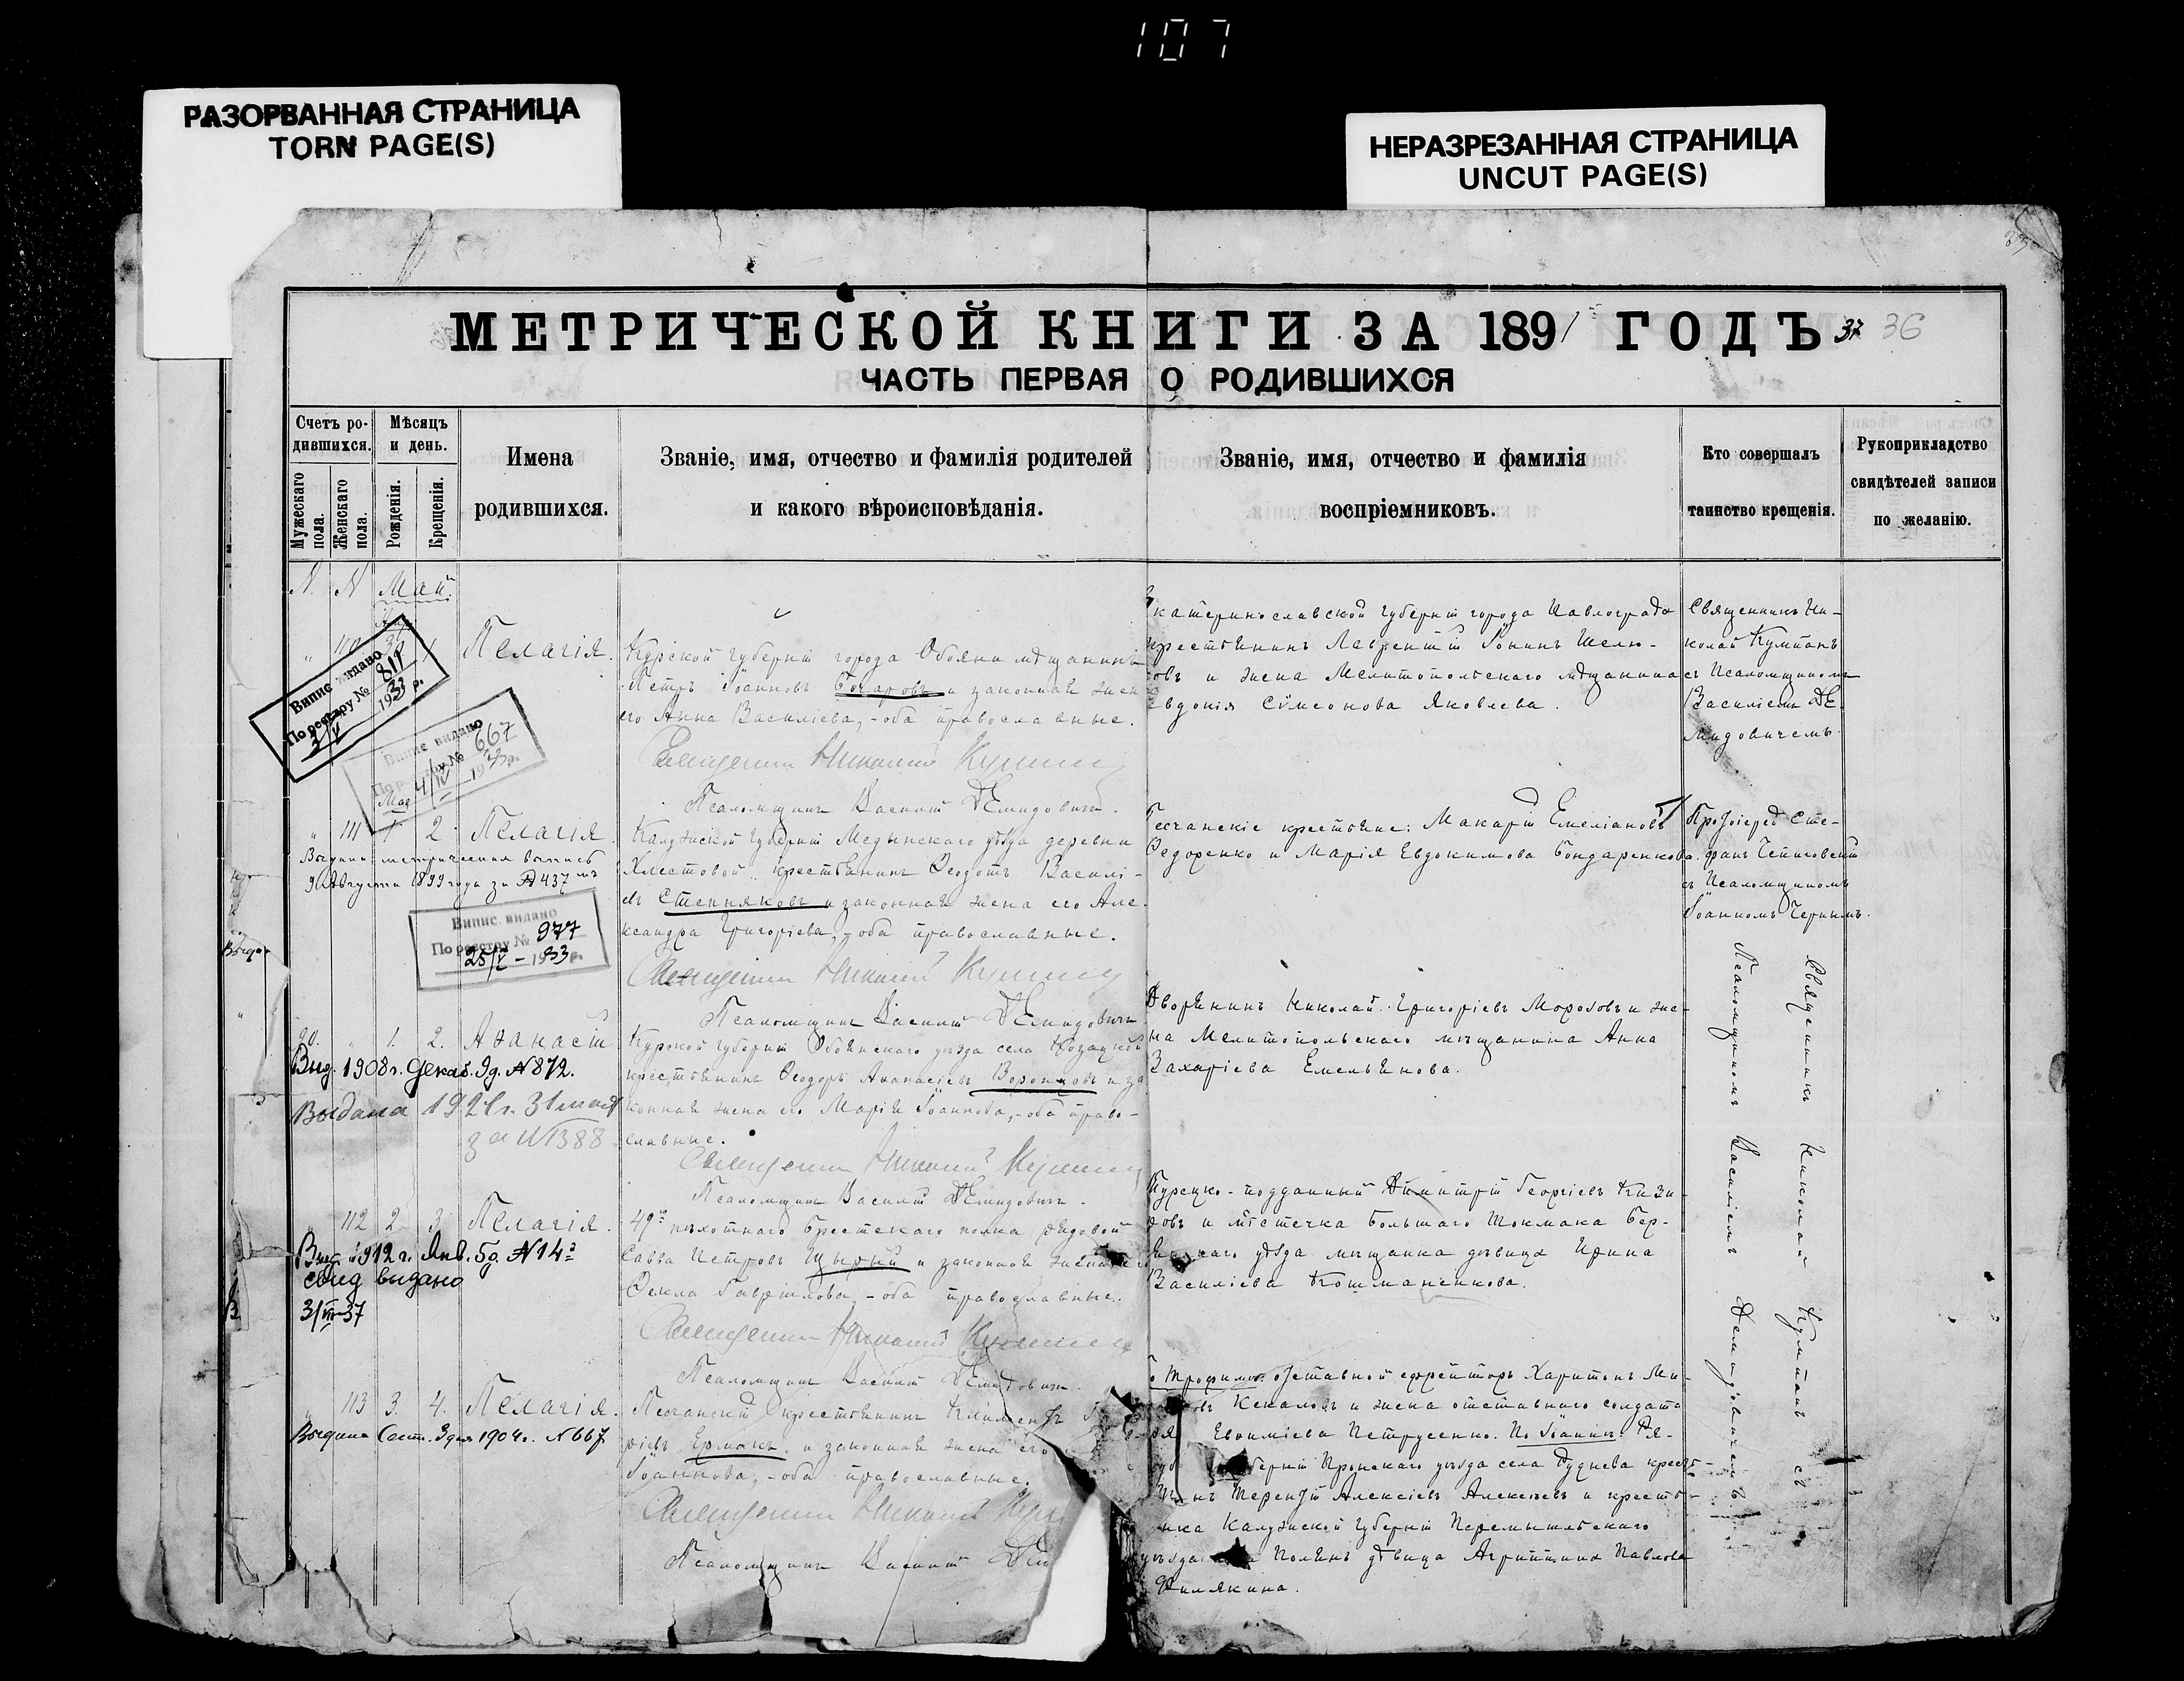 107
РАЗОРВАННАЯ СТРАНИЦА
TORN PAGE(S)
НЕРАЗРЕЗАННАЯ СТРАНИЦА
UNCUT PAGE(S)
МЕТРИЧЕСКОЙ КНИГИ ЗА 1891 ГОДЪ
37 36
ЧАСТЬ ПЕРВАЯ О РОДИВШИХСЯ
Счетъ ро-
дившихся.
Мужескаго пола.
Женскаго пола.
Мѣсяцъ
и день.
Рожденія.
Крещенія.
Имена
родившихся.
Званіе, имя, отчество и фамилія родителей
и какого вѣроисповѣданія.
Званіе, имя, отчество и фамилія
воспріемниковъ.
Кто совершалъ
таинство крещенія.
Рукоприкладство
свидѣтелей записи
по желанію.
N. N Май
110 Пелагія.
Курской губерніи города Обояни мѣщанинъ
Петръ Іоанновъ Бочаровъ и законная жена
его Анна Василіева, - оба православные.
Священникъ Николай
Псаломщикъ Василій Демидовичъ.
Екатеринославской губерніи города Павлограда
крестьянинъ Лаврентій
и жена Мелитопольскаго мѣщанина
Евдокія Сѵмеонова Яковлева.
Священникъ Ни-
колай Кумпанъ
съ Псаломщикомъ
Василіемъ Де-
мидовичемъ
Випис видано
По реєстру № 811
3/V 1933 р.
Випис видано
По реєстру № 667
4/IV 1933 р.
Мая
111 1 2. Пелагія
Выдана метрическая выпись
9 Августа 1899 года за № 437
Випис. видано
По реєстру № 977
25/V - 1933 р.
Калужской губерніи Медынскаго уѣзда деревни
Хлестовой крестьянинъ Ѳеодотъ Василі-
евъ Степняковъ и законная жена его Але-
ксандра Григоріева, - оба православные.
Священникъ Николай
Псаломщикъ Василій Демидовичъ
Песчанскіе крестьяне: Макарій Емеліановъ
Ѳедоренко и Марія Евдокимова Бондаренкова.
Протоіерей Сте-
фанъ
съ Псаломщикомъ
Іоанномъ Чернымъ.
90. 1. 2. Аѳанасій
Выд. 1908 г. Декаб. 9д. № 872.
Выдана 1921 г. 31 мая
за № 1388
Курской губерніи Обоянскаго уѣзда села
крестьянинъ Ѳеодоръ Аѳанасіевъ Воронцовъ и за-
конная жена его Марія Іоаннова, - оба право-
славные.
Священникъ Николай
Псаломщикъ Василій Демидовичъ.
Дворянинъ Николай Григоріевъ Морозовъ и же-
на Мелитопольскаго мѣщанина Анна
Захаріева Емельянова.
Священникъ Николай Кумпанъ съ
Псаломщикомъ Василіемъ Демидовичемъ.
112 2 3 Пелагія.
Выд. 1912 г. Янв. 5д. № 14
свид видано
31/VII-37
49го пѣхотнаго Брестскаго полка рядовой
Савва Петровъ Щырый и законная жена его
Ѳекла Гавріилова, - оба православные.
Священникъ Николай
Псаломщикъ Василій Демидовичъ.
Турецко-подданный Димитрій Георгіевъ
и мѣстечка Большаго Токмака Бер-
дянскаго уѣзда мѣщанка дѣвица Ирина
Василіева
113 3. 4. Пелагія.
Выдана Сент. 3 дня 1904 г. № 667
Песчанскій крестьянинъ Климентъ
Ермакъ и законная жена его
Іоаннова, - оба православные.
Священникъ Николай
Псаломщикъ Василій
отставной ефрейторъ Харитонъ
и жена отставнаго солдата
Евѳиміева Петрусенко.
губерніи Пронскаго уѣзда села
Терентій Алексіевъ Алексѣевъ и кресть-
янка Калужской губерніи Перемышльскаго
уѣзда дѣвица Агриппина Павлова